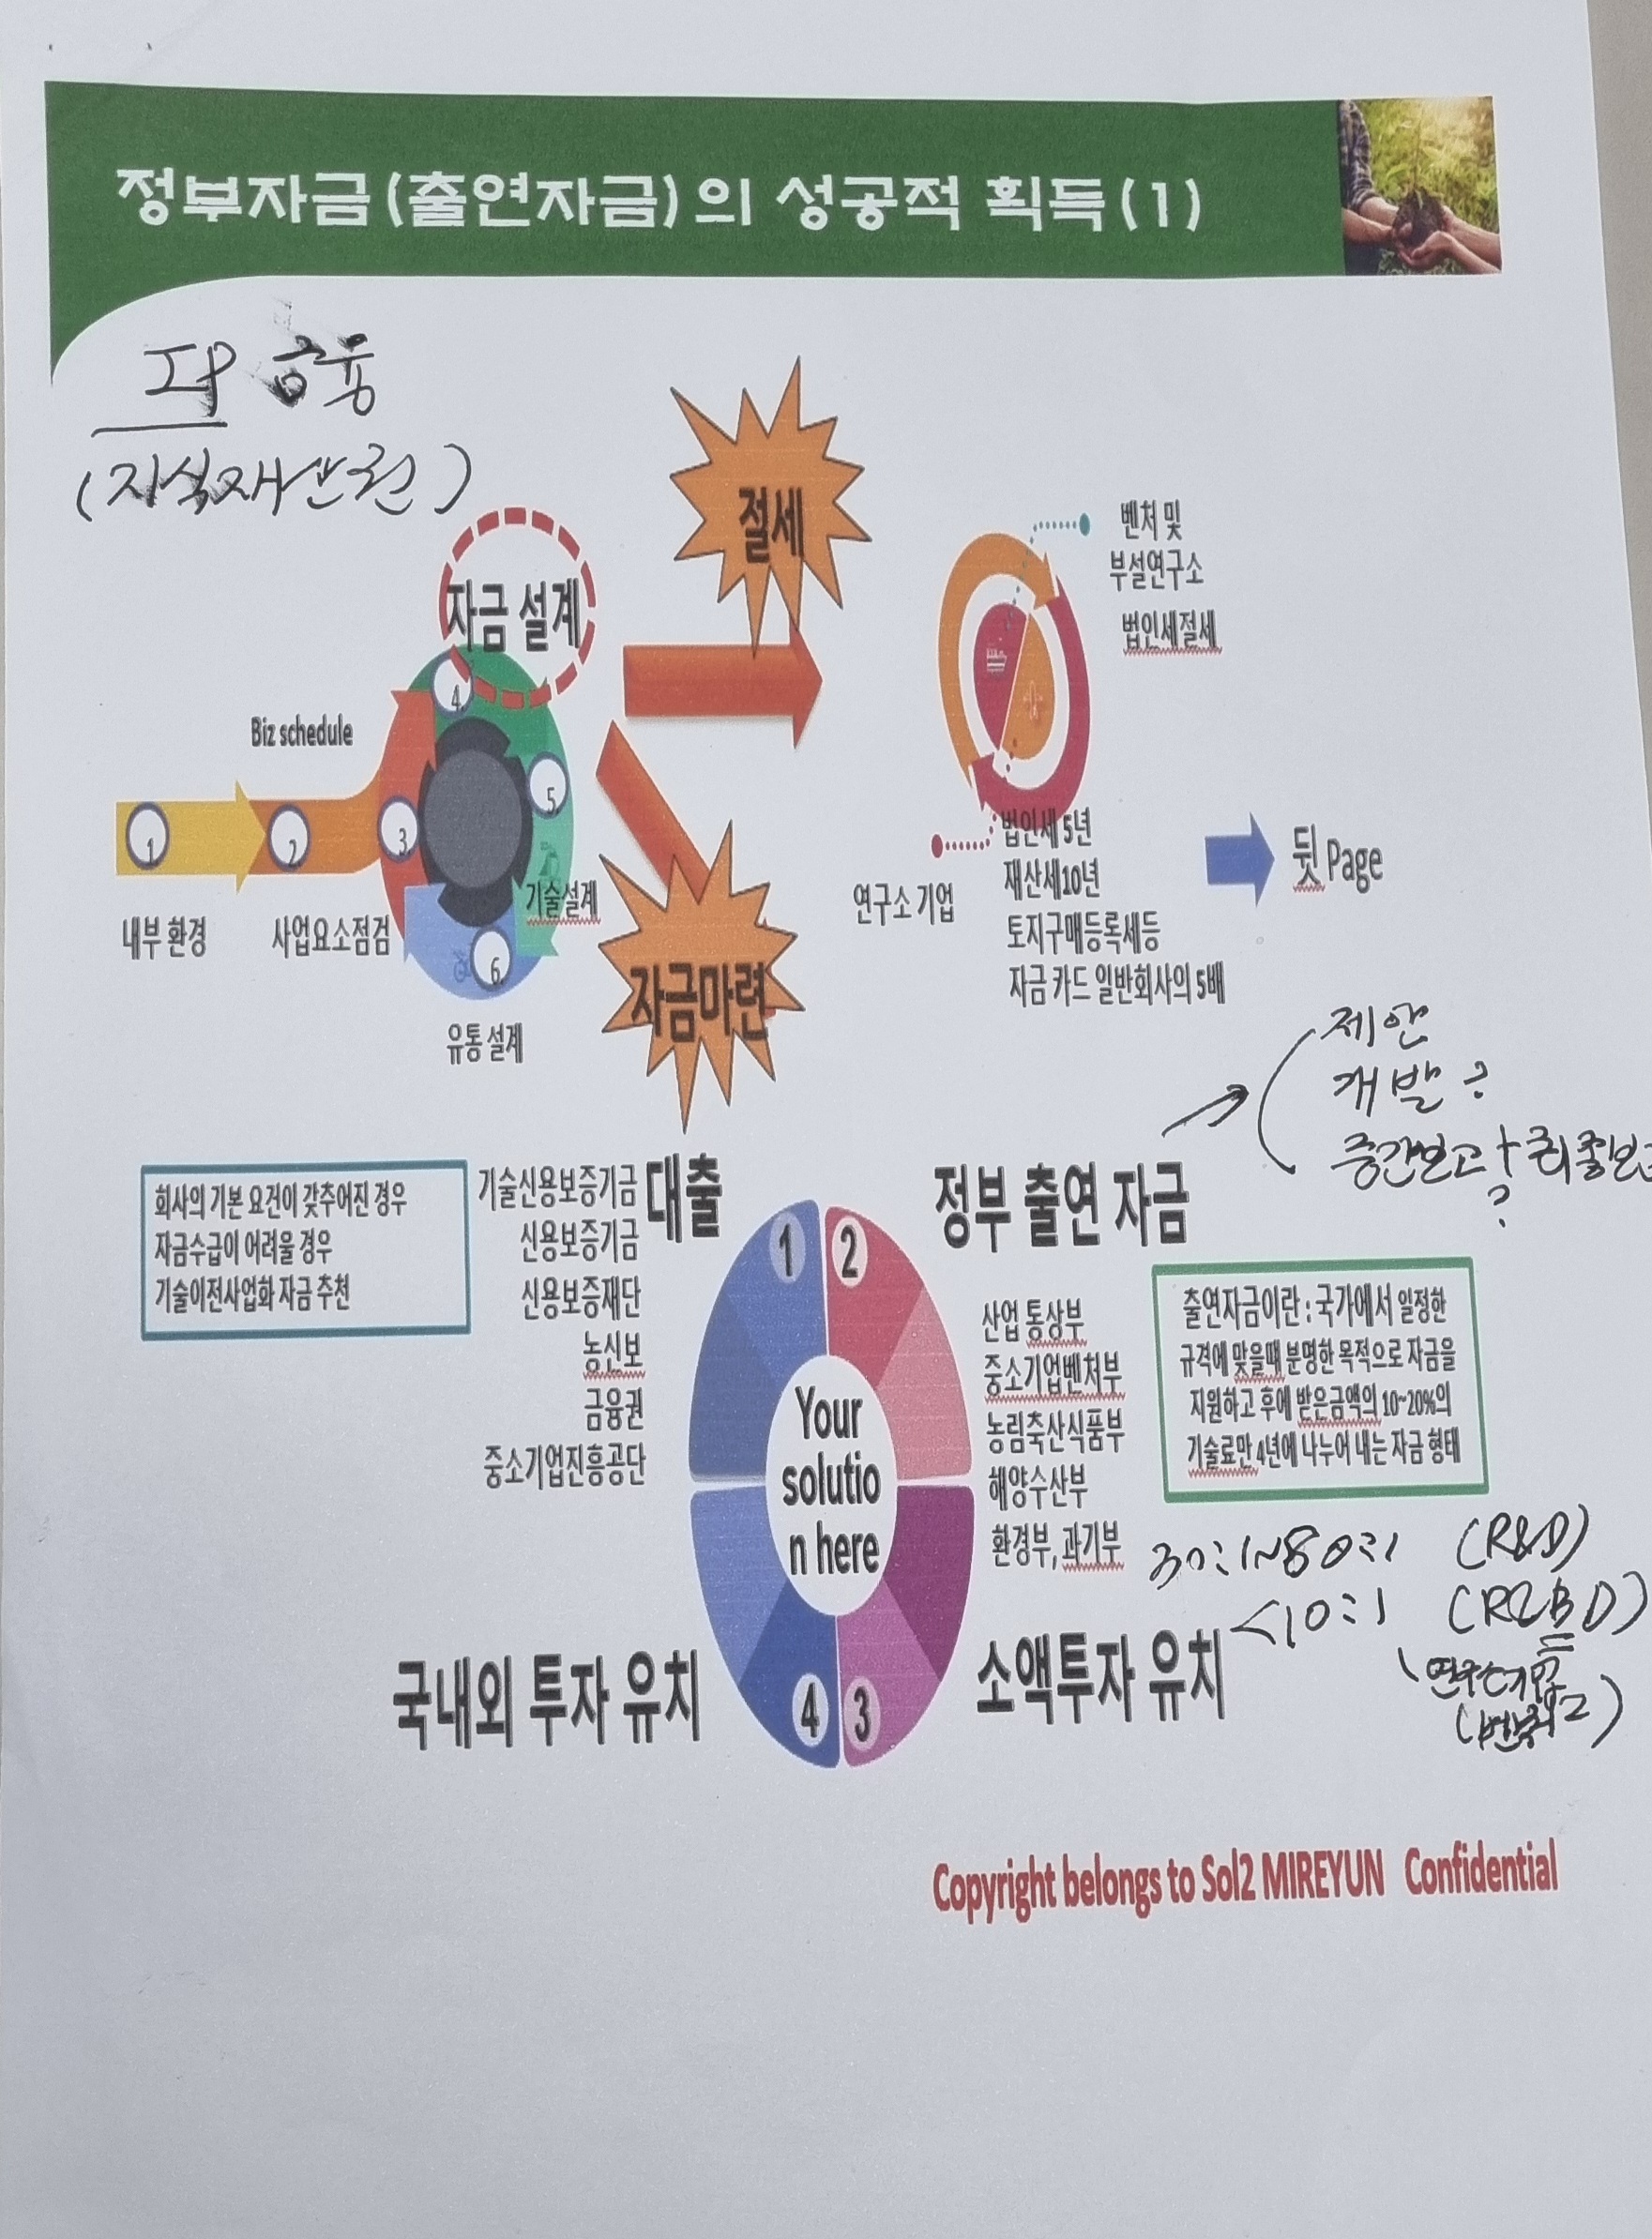 정부자금(출연자금)의 성공적 획득(1)
IP 금융
(지식재산권)
절세
자금 설계
벤처 및
부설연구소
법인세절세
Biz schedule
4
5
1
2
3
6
기술설계
내부 환경
사업요소점검
유통 설계
자금마련
연구소 기업
법인세 5년
재산세10년
토지구매등록세등
자금 카드 일반회사의 5배
뒷 Page
제안
개발?
중간보고 + 최종보고
?
회사의 기본 요건이 갖추어진 경우
자금수급이 어려울 경우
기술이전사업화 자금 추천
대출
기술신용보증기금
신용보증기금
신용보증재단
농신보
금융권
중소기업진흥공단
정부 출연 자금
산업 통상부
중소기업벤처부
농림축산식품부
해양수산부
환경부, 과기부
출연자금이란 : 국가에서 일정한
규격에 맞을때 분명한 목적으로 자금을
지원하고 후에 받은금액의 10~20%의
기술료만 4년에 나누어 내는 자금 형태
1
2
Your
solutio
n here
4
3
30:1~80:1 (R&D)
<10:1 (R&BD)
연구소기업
국내외 투자 유치
소액투자 유치
Copyright belongs to Sol2 MIREYUN Confidential